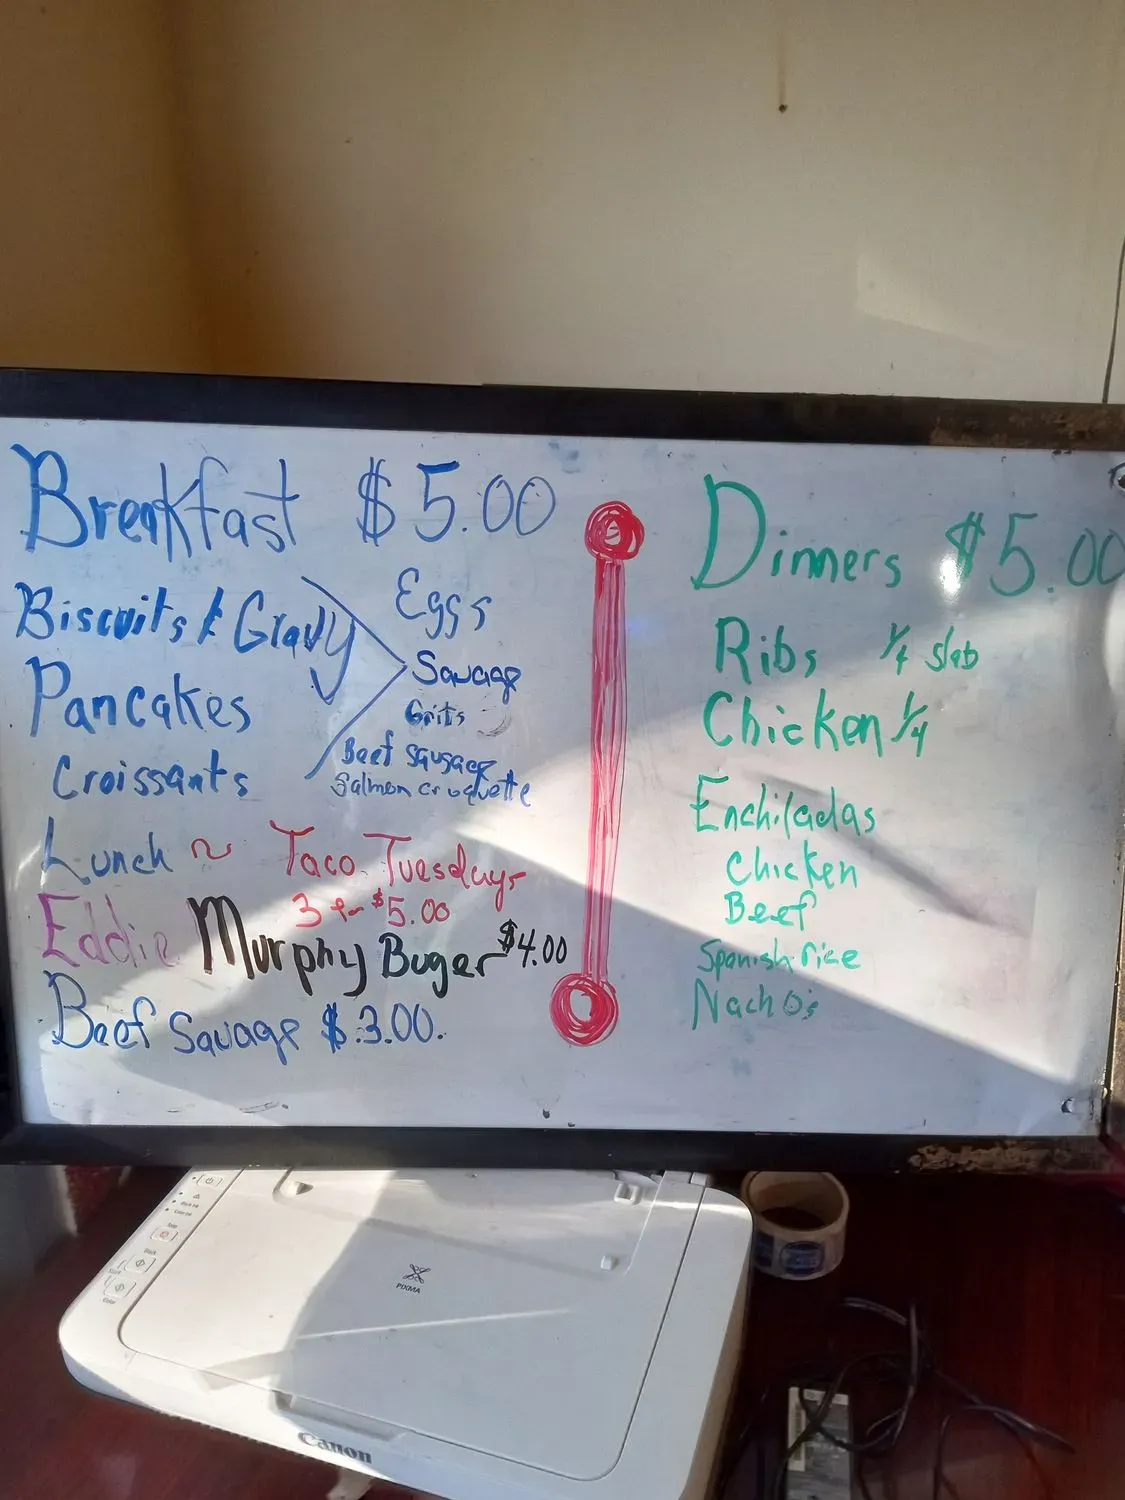 Breakfast $5.00
Biscuits & Gravy
Pancakes
Croissants
Eggs
Sausage
Grits
Beef sausage
Salmon croquette
Lunch ~ Taco Tuesdays
3 for $5.00
Eddie Murphy Buger $4.00
Beef Sausage $.3.00.
Dinners $5.00
Ribs 1/4 slab
Chicken 1/4
Enchiladas
Chicken
Beef
Spanish rice
Nacho's
PIXMA
Canon